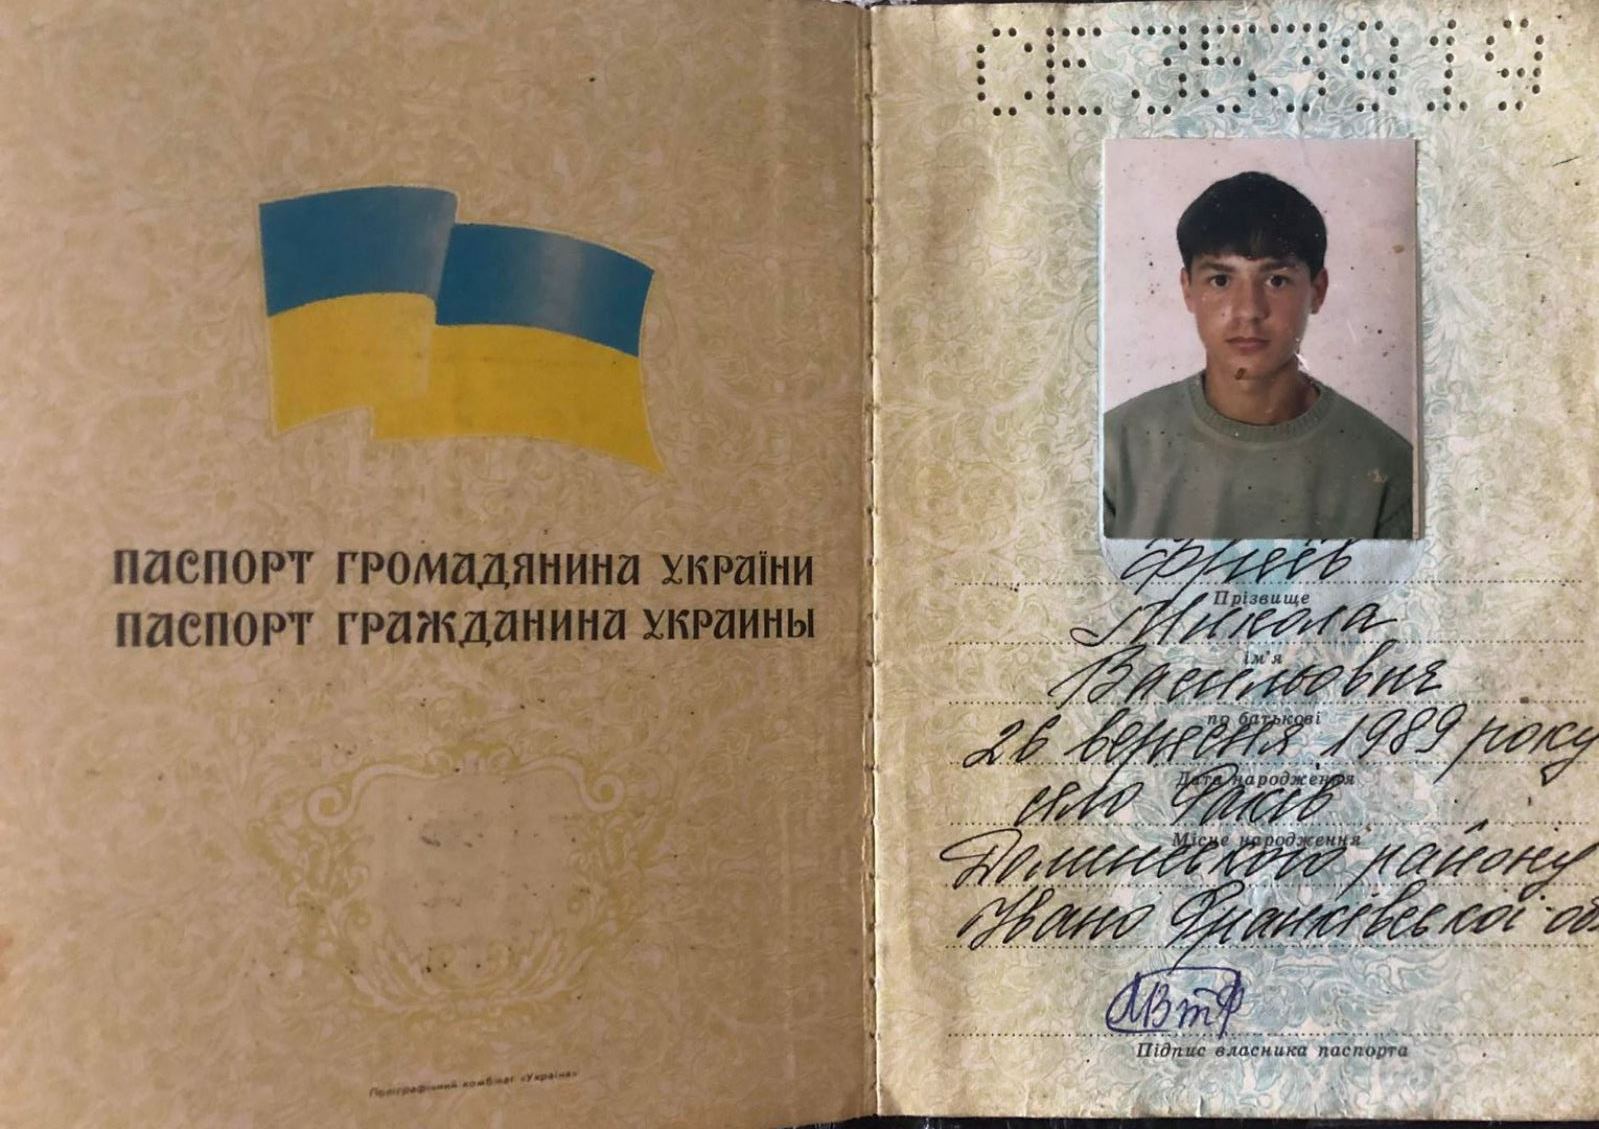 ПАСПОРТ ГРОМАДЯНИНА УКРАЇНИ
ПАСПОРТ ГРАЖДАНИНА УКРАИНЫ
Поліграфічний комбінат «Україна»
СЕ 353919
Прізвище
Микола
ім'я
Васильович
по батькові
26 вересня 1989 року
Дата народження
село
Місце народження
Долинського району
Івано Франківської об
Підпис власника паспорта